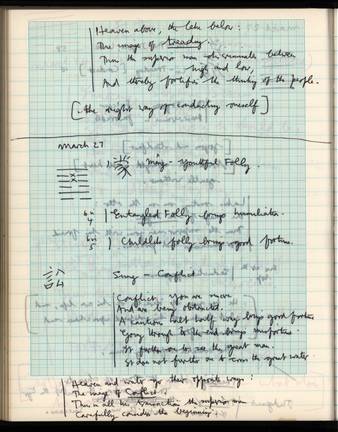 Heaven above, the lake below:
The image of Treading.
Thus the superior man discriminates between
high and low,
And thereby fortifies the thinking of the people.
[the right way of conducting oneself]
March 27
蒙 Mêng - Youthful Folly.
6 in
4 | Entangled Folly brings humiliation.
6 in
5 | Childlike folly brings good fortune.
訟 Sung - Conflict
Conflict. You are sincere
And are being obstructed.
A cautious halt half way brings good fortune.
Going through to the end brings misfortune.
It furthers one to see the great man.
It does not further one to cross the great water.
Heaven and water go their opposite ways:
The image of Conflict.
Thus in all his transactions the superior man
Carefully considers the beginning.